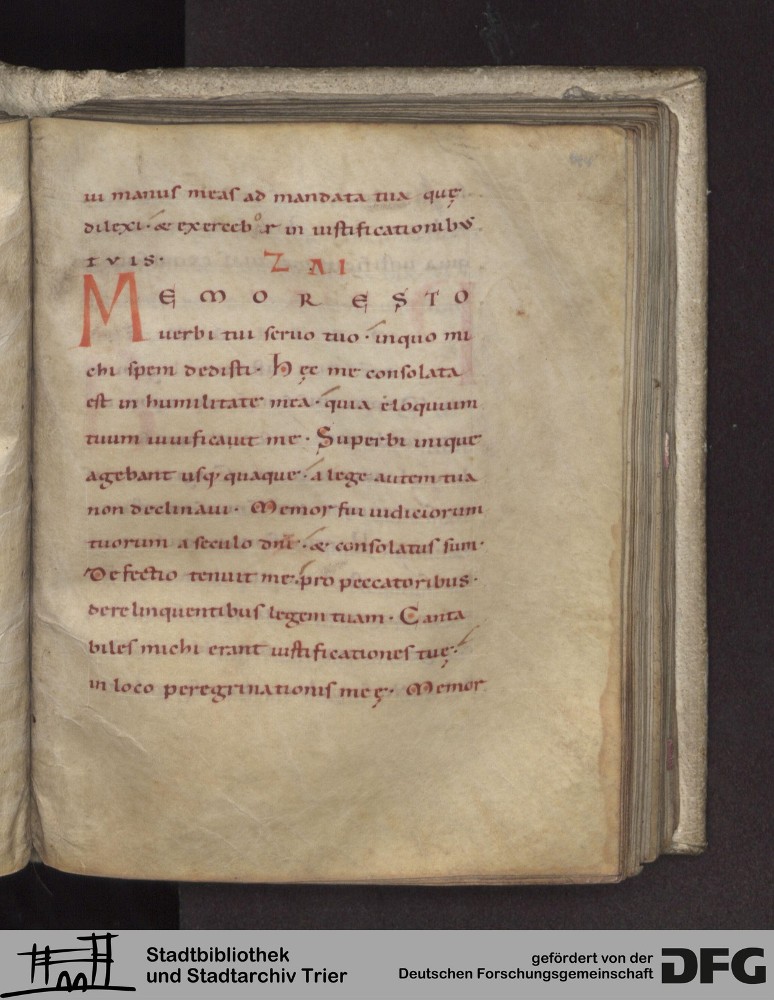 ui manuſ meaſ ad mandata tua quę
dilexi · & exercebor in iuſtificationibuſ
TVIS · ZAI
MEMOR ESTO
uerbi tui ſeruo tuo · inquo mi
chi ſpem dediſti · Hęc me conſolata
eſt in humilitate mea · quia eloquium
tuum uiuificauit me · Superbi inique
agebant uſq; quaque · a lege autem tua
non declinaui · Memor fui iudiciorum
tuorum a ſeculo dn̄e · & conſolatuſ ſum ·
Defectio tenuit me · pro peccatoribus ·
derelinquentibuſ legem tuam · Canta
bileſ michi erant iuſtificationeſ tuę ·
in loco peregrinationiſ meę · Memor
Stadtbibliothek
und Stadtarchiv Trier
gefördert von der
Deutschen Forschungsgemeinschaft
DFG